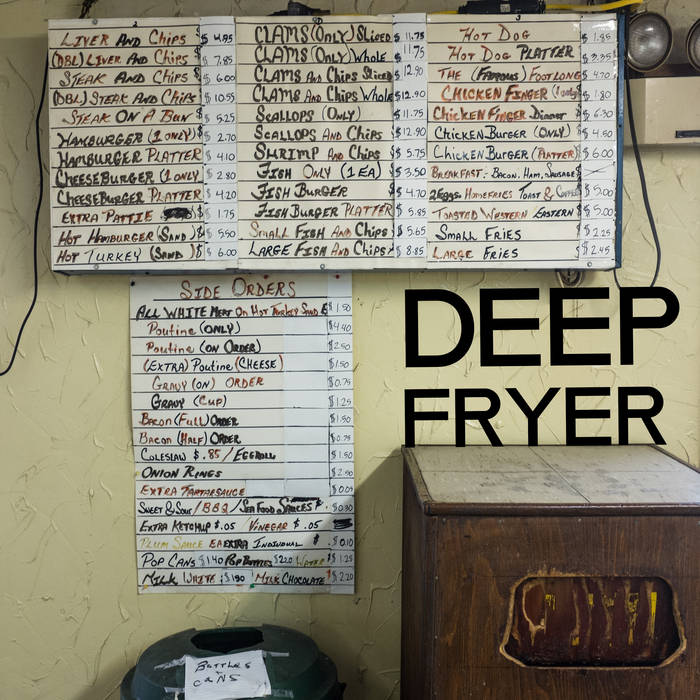 LIVER AND CHIPS $ 4.95
(DBL) LIVER AND CHIPS $ 7.85
STEAK AND CHIPS $ 6.00
(DBL) STEAK AND CHIPS $ 10.55
STEAK ON A BUN $ 5.25
HAMBURGER (1 ONLY) $ 2.70
HAMBURGER PLATTER $ 4.10
CHEESEBURGER (1 ONLY) $ 2.80
CHEESEBURGER PLATTER $ 4.20
EXTRA PATTIE $ 1.75
HOT HAMBURGER (SAND) $ 5.50
HOT TURKEY (SAND) $ 6.00
CLAMS (ONLY) SLICED $ 11.75
CLAMS (ONLY) WHOLE 11.75
CLAMS AND CHIPS SLICED $ 12.90
CLAMS AND CHIPS WHOLE $ 12.90
SCALLOPS (ONLY) $ 11.75
SCALLOPS AND CHIPS $ 12.90
SHRIMP AND CHIPS $ 5.75
FISH ONLY (1 EA) $ 3.50
FISH BURGER $ 4.70
FISH BURGER PLATTER $ 5.85
SMALL FISH AND CHIPS $ 5.65
LARGE FISH AND CHIPS $ 8.85
HOT DOG $ 1.95
HOT DOG PLATTER $ 3.35
THE (FAMOUS) FOOTLONG $ 4.70
CHICKEN FINGER (1 only) $ 1.80
CHICKEN FINGER Dinner $ 6.30
CHICKEN BURGER (ONLY) $ 4.50
CHICKEN BURGER (PLATTER) $ 6.00
BREAKFAST:- BACON, HAM, SAUSAGE
2 EGGS. HOMEFRIES TOAST & COFFEE $ 5.00
TOASTED WESTERN EASTERN $ 5.00
SMALL FRIES $ 2.25
LARGE FRIES $ 2.45
SIDE ORDERS
ALL WHITE MEAT ON HOT TURKEY SAND $ 1.50
Poutine (ONLY) $ 4.40
Poutine (ON ORDER) $ 2.50
(EXTRA) Poutine (CHEESE) $ 1.50
GRAVY (ON) ORDER $ 0.75
GRAVY (CUP) $ 1.25
Bacon (Full) ORDER $ 1.50
Bacon (Half) ORDER $ 0.75
COLESLAW $ .85 / EGGROLL $ 1.50
ONION RINGS $ 2.50
EXTRA TARTARSAUCE $ 0.05
SWEET & SOUR / BBQ / SEAFOOD SAUCES $ 0.30
EXTRA KETCHUP $ .05 VINEGAR $ .05
PLUM SAUCE EXTRA INDIVIDUAL $ 0.10
POP CANS $ 1.40 POP BOTTLES $ 2.20 WATER $ 1.25
MILK WHITE : $ 1.90 MILK CHOCOLATE $ 2.20
DEEP
FRYER
BOTTLES
+
CANS